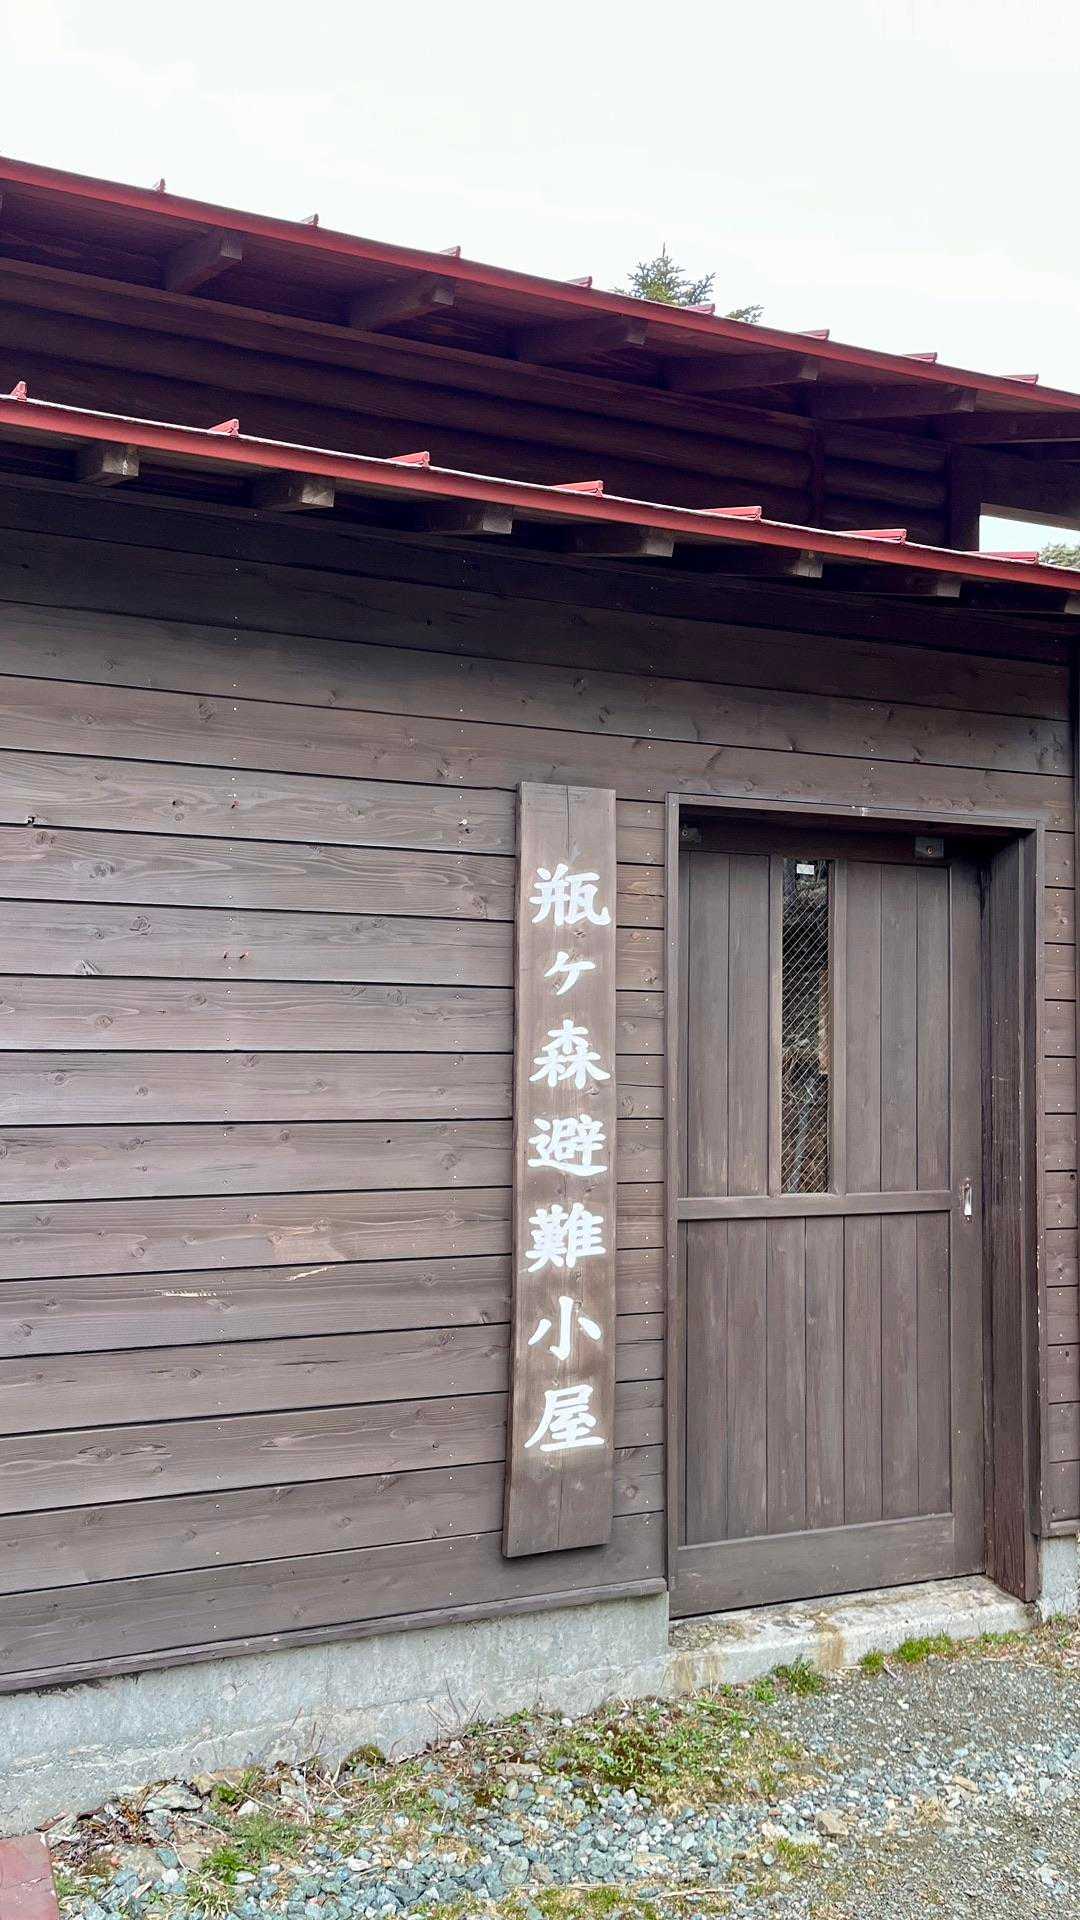 瓶ヶ森避難小屋